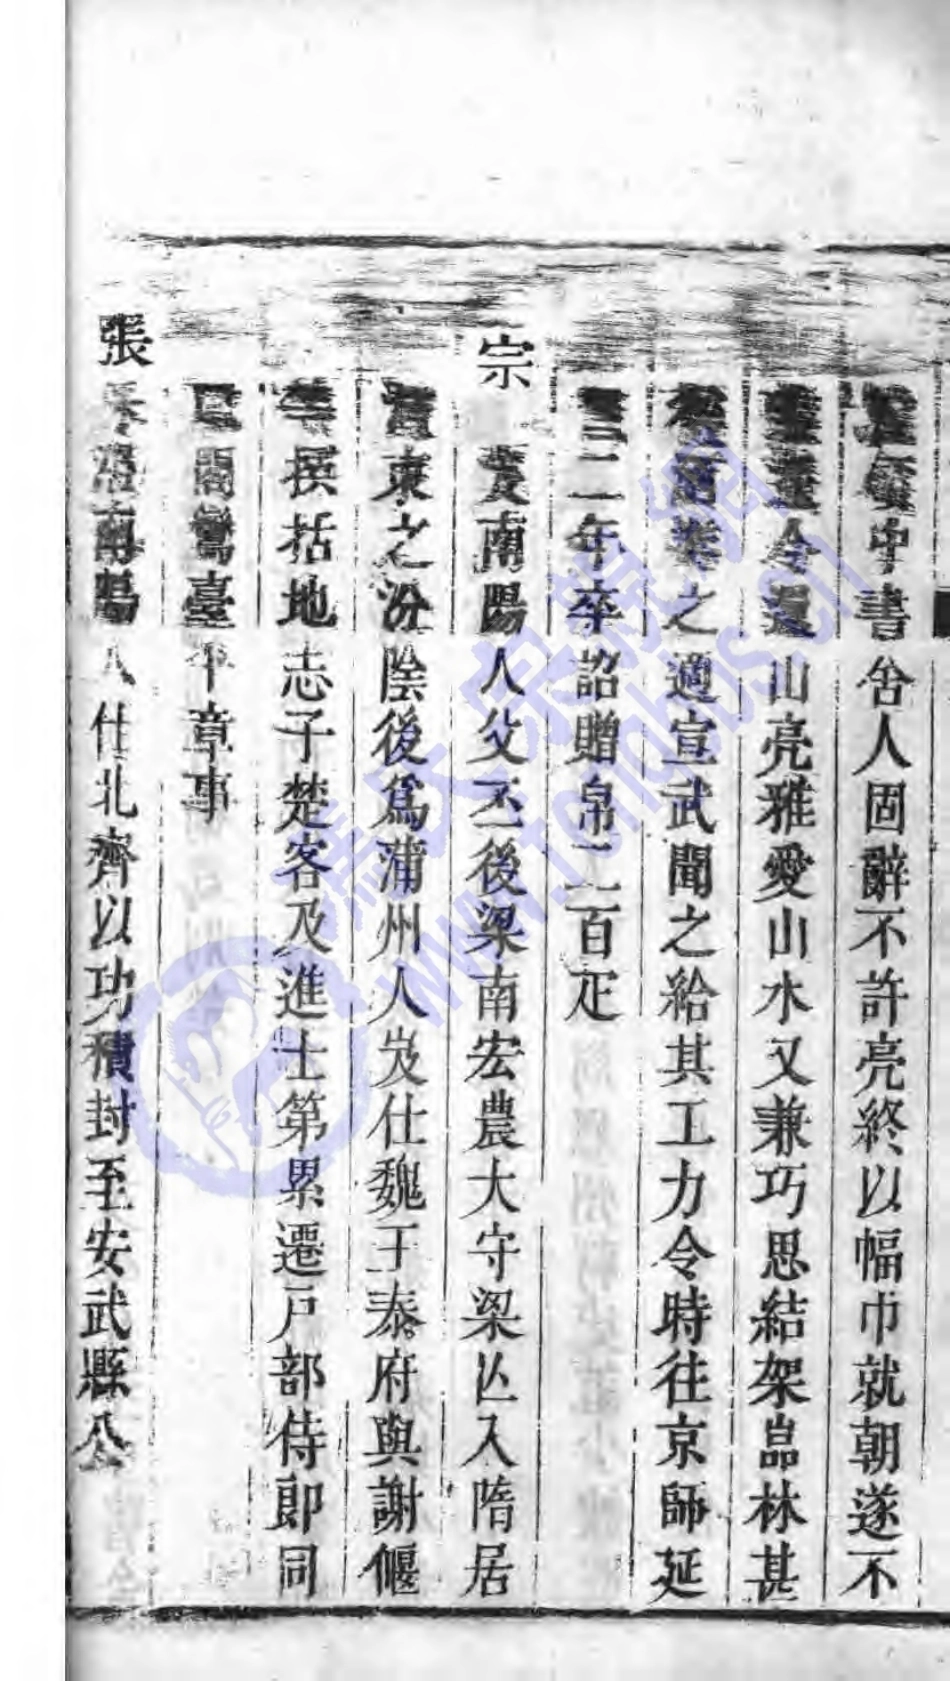 中書舍人固辭不許亮終以幅巾就朝遂不
令還山亮雅愛山水又兼巧思結架嵓林甚
之適宣武聞之給其工力令時往京師延
二年卒詔贈帛二百疋
宗岌南陽人父丕後梁南宏農大守梁亾入隋居
東之汾陰後爲蒲州人岌仕魏王泰府與謝偃
撰括地志子楚客及進士第累遷戶部侍郎同
閣鸞臺平章事
張 南陽人仕北齊以功積封至安武縣公
瀛大家譜網
www.tongbis.cn